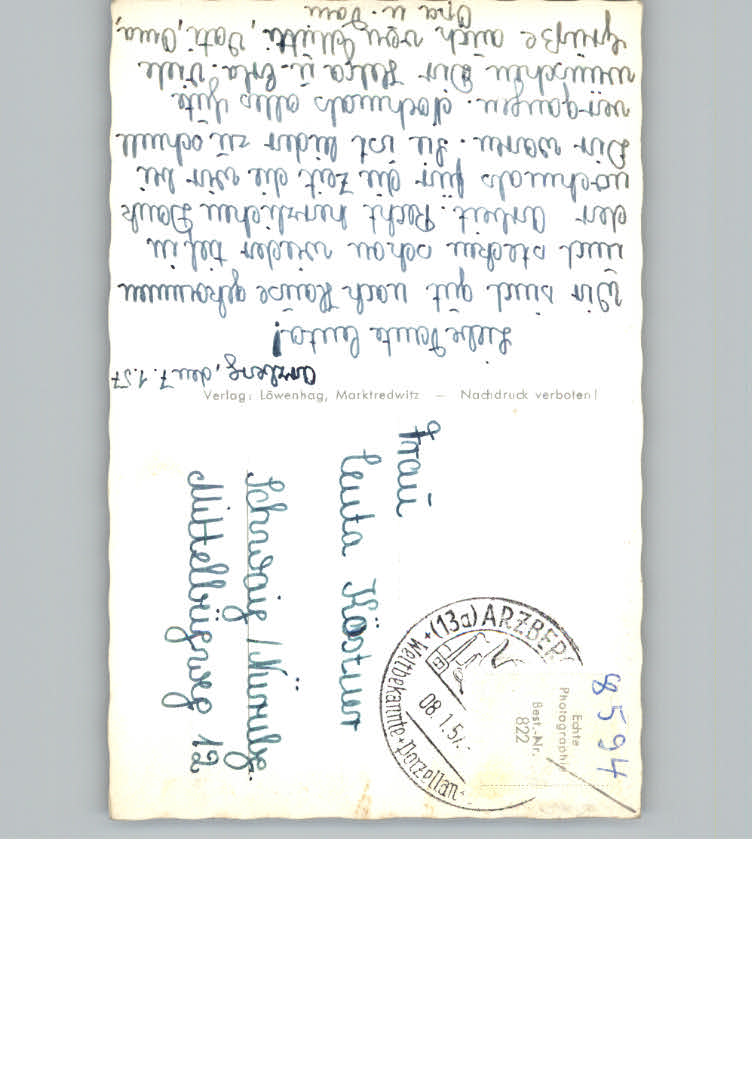 Arzberg, den 7.1.57
Liebe Tante Leuta!
Wir sind gut nach Hause gekommen
und stecken schon wieder tief in
der Arbeit. Recht herzlichen Dank
nochmals für die Zeit, die wir bei
Dir waren. Sie ist leider zu schnell
vergangen. Nochmals alles Gute
wünschen Dir Helga u. Erla. Viele
Grüße auch von Mutti, Vati, Oma,
Opa u.
Verlag: Löwenhag, Marktredwitz — Nachdruck verboten!
Frau
Leuta Köstner
Schwaig/Nürnbg.
Mittelbügweg 12
(13a) ARZBERG
08.1.57.-
+ Weltbekannte + Porzellan-
Echte
Photographie
Best.-Nr.
822
8594